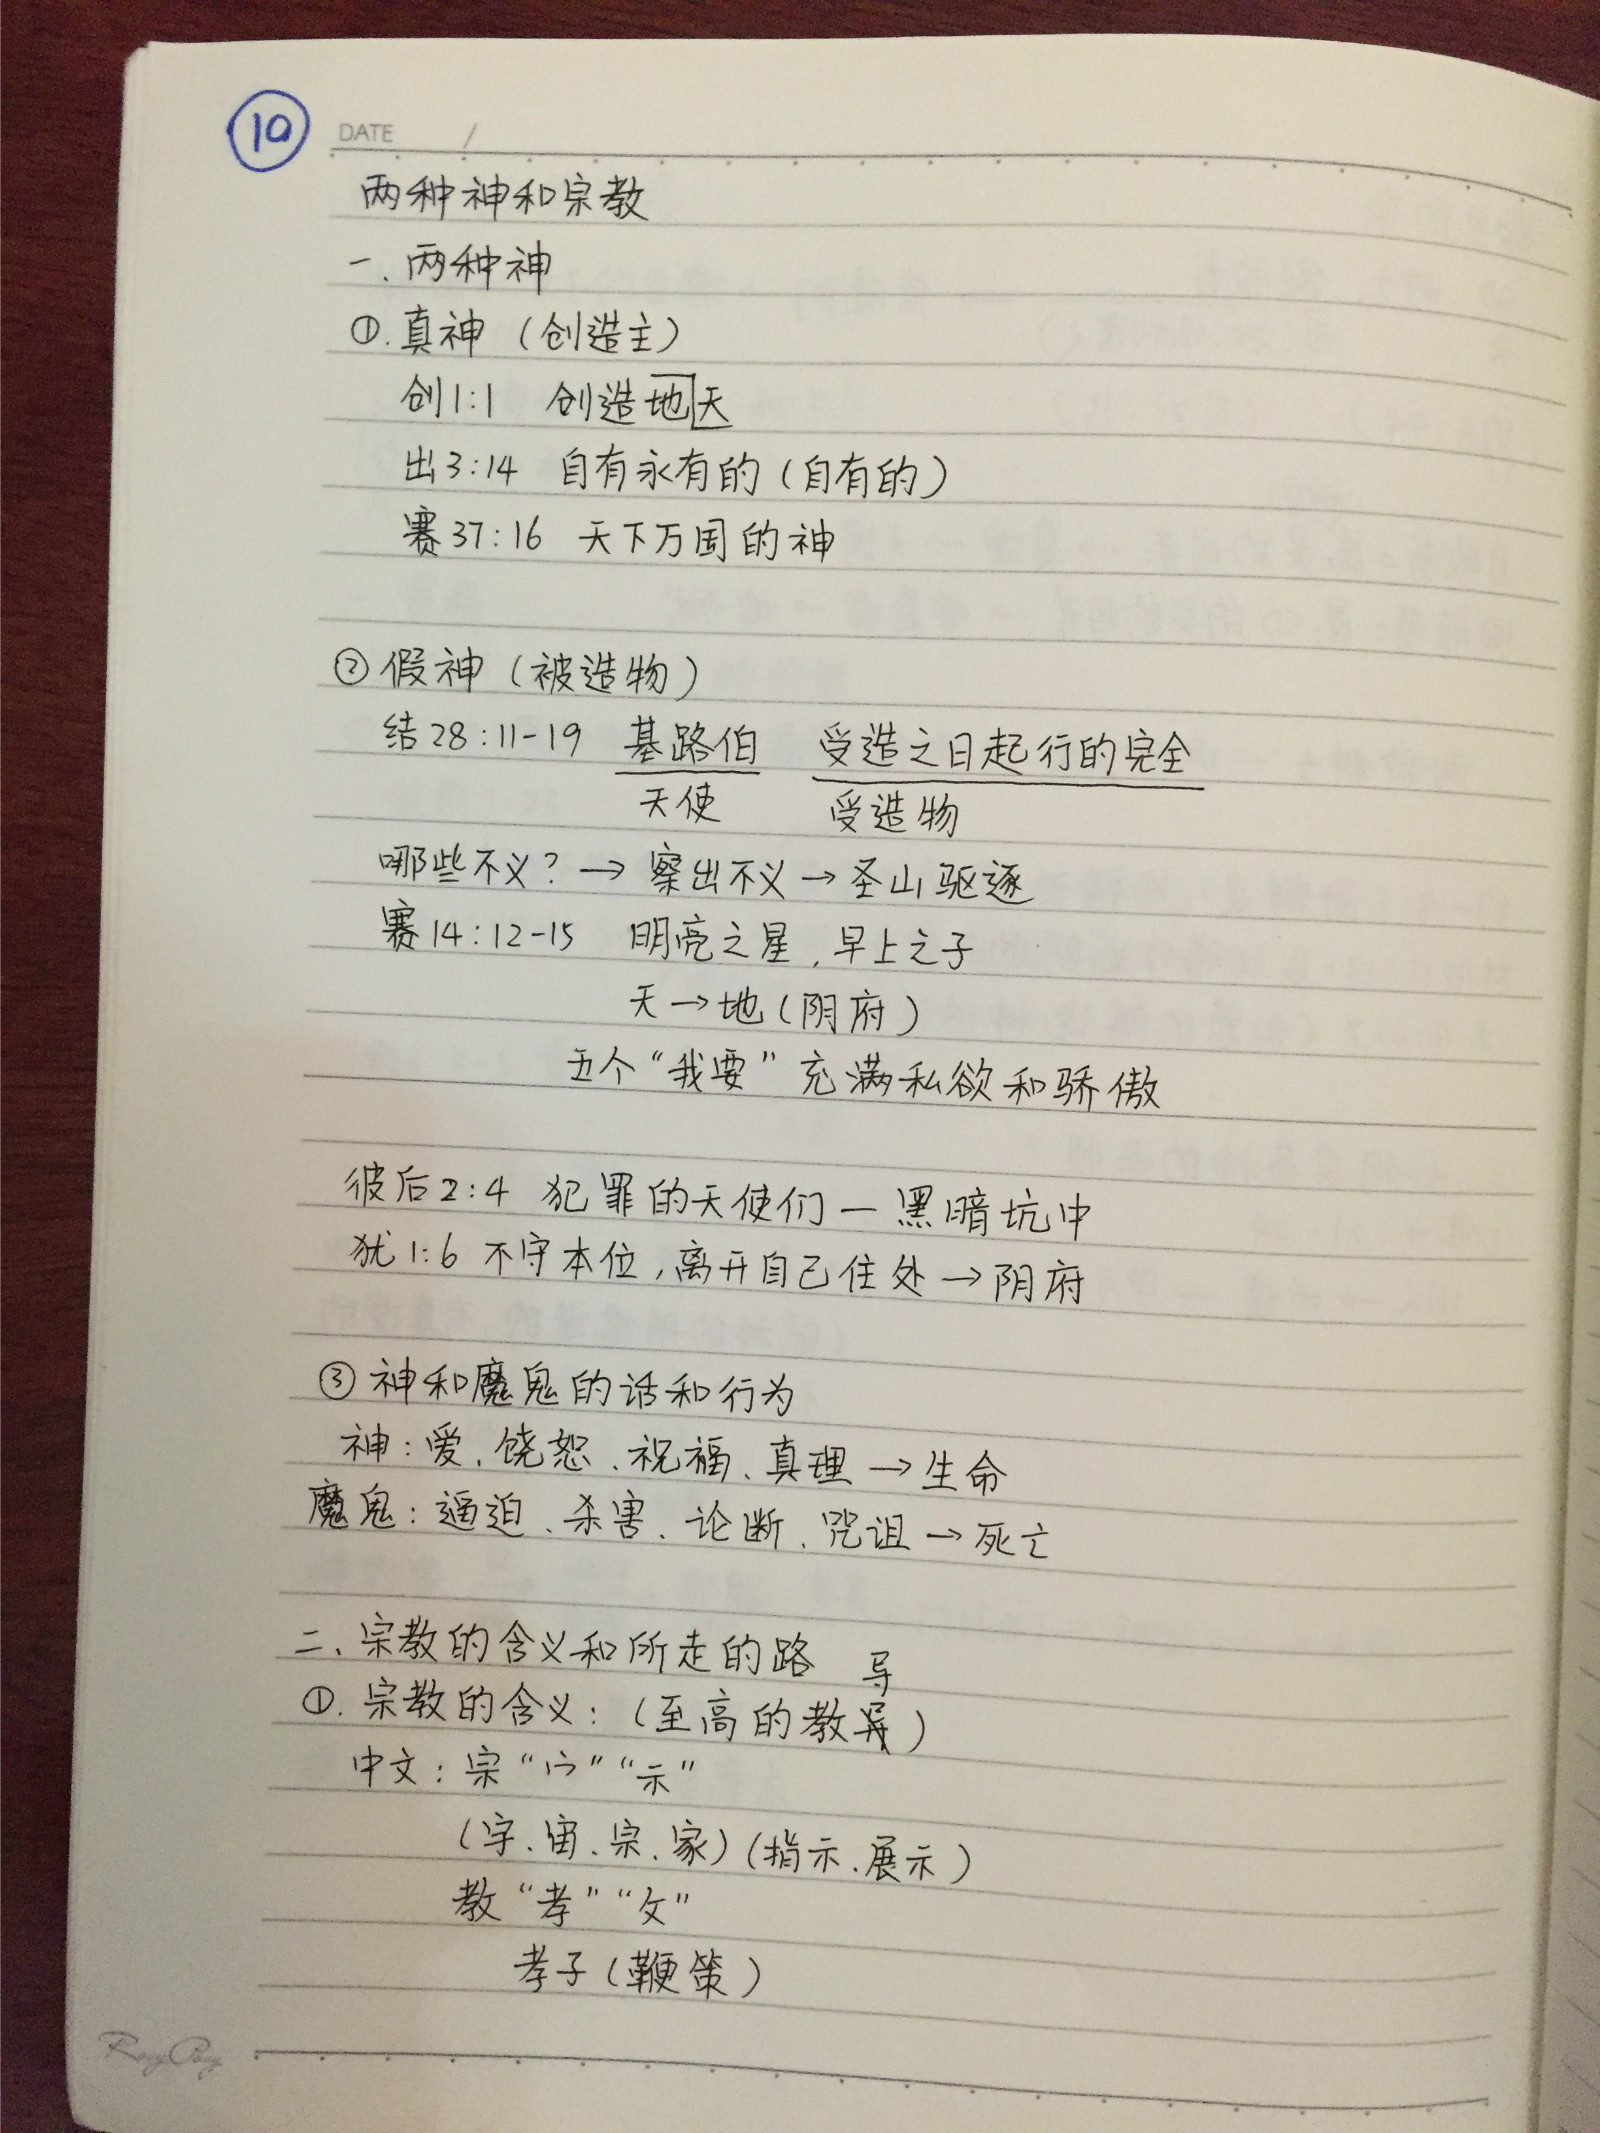 10 DATE /
两种神和宗教
一、两种神
①.真神（创造主）
创1:1 创造地天
出3:14 自有永有的（自有的）
赛37:16 天下万国的神
②假神（被造物）
结28:11-19 基路伯 受造之日起行的完全
天使 受造物
哪些不义？→察出不义→圣山驱逐
赛14:12-15 明亮之星，早上之子
天→地（阴府）
五个“我要”充满私欲和骄傲
彼后2:4 犯罪的天使们—黑暗坑中
犹1:6 不守本位，离开自己住处→阴府
③神和魔鬼的话和行为
神：爱、饶恕、祝福、真理→生命
魔鬼：逼迫、杀害、论断、咒诅→死亡
二、宗教的含义和所走的路
导
①.宗教的含义：（至高的教导）
中文：宗“宀”“示”
（宇、宙、宗、家）（指示、展示）
教“孝”“攵”
孝子（鞭策）